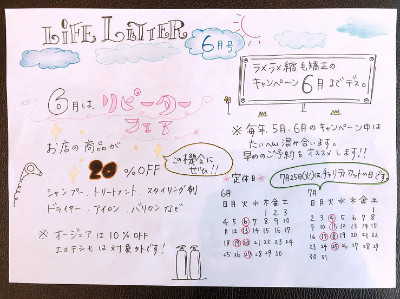 LiFE LETTER
6月号
ラメラメ縮毛矯正の
キャンペーン 6月までデス。
6月は リピーター
フェア
お店の商品が
20%OFF
この機会に
ぜひ!!
シャンプー、トリートメント、スタイリング剤
ドライヤー、アイロン、バリカンなど
※ オージュアは10%OFF
エステシモは対象外です!
※ 毎年、5月、6月のキャンペーン中は
たいへん混み合います。
早めのご予約をオススメします!!
☆定休日☆
7月25日(火)はチャリティカットの日です。
6月
日 月 火 水 木 金 土
1 2 3
4 5 6 7 8 9 10
11 12 13 14 15 16 17
18 19 20 21 22 23 24
25 26 27 28 29 30
7月
日 月 火 水 木 金 土
1
2 3 4 5 6 7 8
9 10 11 12 13 14 15
16 17 18 19 20 21 22
23 24 25 26 27 28 29
30 31